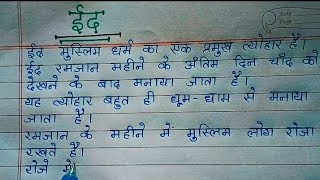 ईद
ईद मुस्लिम धर्म का एक प्रमुख त्योहार है।
ईद रमजान महीने के अंतिम दिन चाँद को
देखने के बाद मनाया जाता है।
यह त्योहार बहुत ही धूम-धाम से मनाया
जाता है।
रमजान के महीने में मुस्लिम लोग रोजा
रखते हैं।
रोजे में